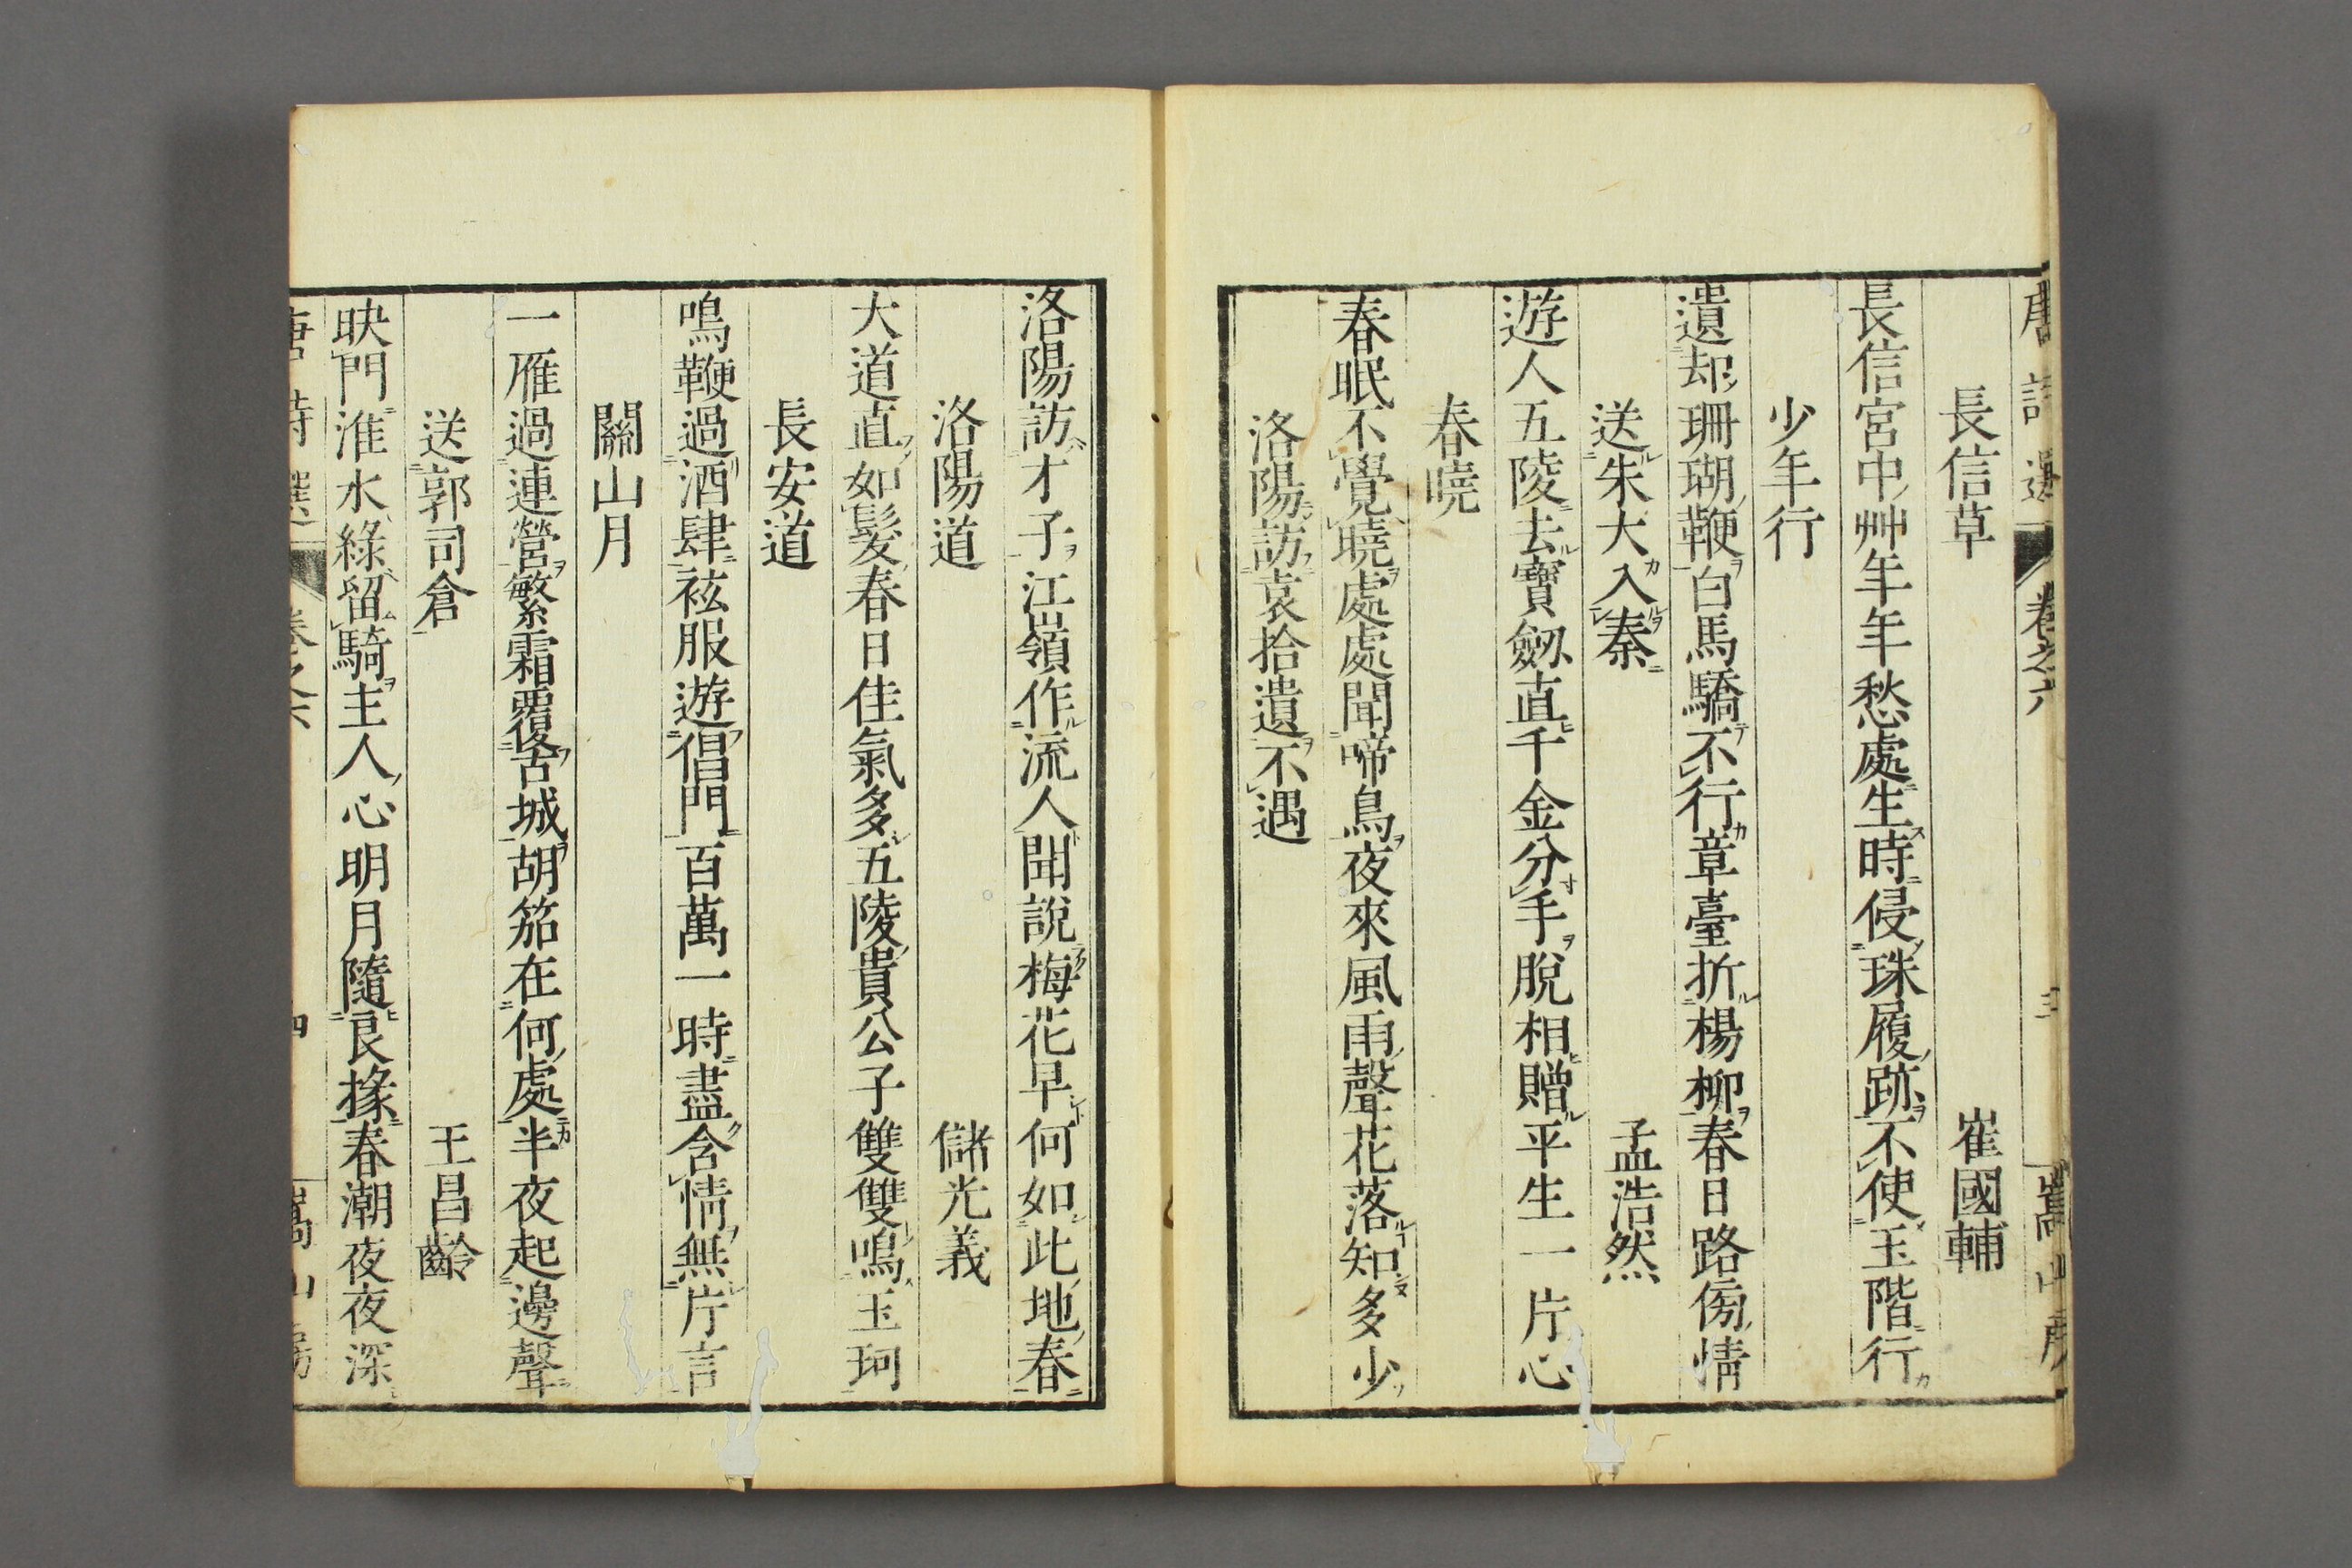 唐詩選 卷之六 三 嵩山房
長信草 崔國輔
長信宮中艸年年愁處生時侵珠履跡不使玉階行
少年行
遺却珊瑚鞭白馬驕不行章臺折楊柳春日路傍情
送朱大入秦 孟浩然
遊人五陵去寶劔直千金分手脫相贈平生一片心
春曉
春眠不覺曉處處聞啼鳥夜來風雨聲花落知多少
洛陽訪袁拾遺不遇
洛陽訪才子江嶺作流人聞說梅花早何如此地春
洛陽道 儲光義
大道直如髮春日佳氣多五陵貴公子雙雙鳴玉珂
長安道
鳴鞭過酒肆袨服遊倡門百萬一時盡含情無片言
關山月
一雁過連營繁霜覆古城胡笳在何處半夜起邊聲
送郭司倉 王昌齡
映門淮水綠留騎主人心明月隨良掾春潮夜夜深
唐詩選 卷之六 四 嵩山房